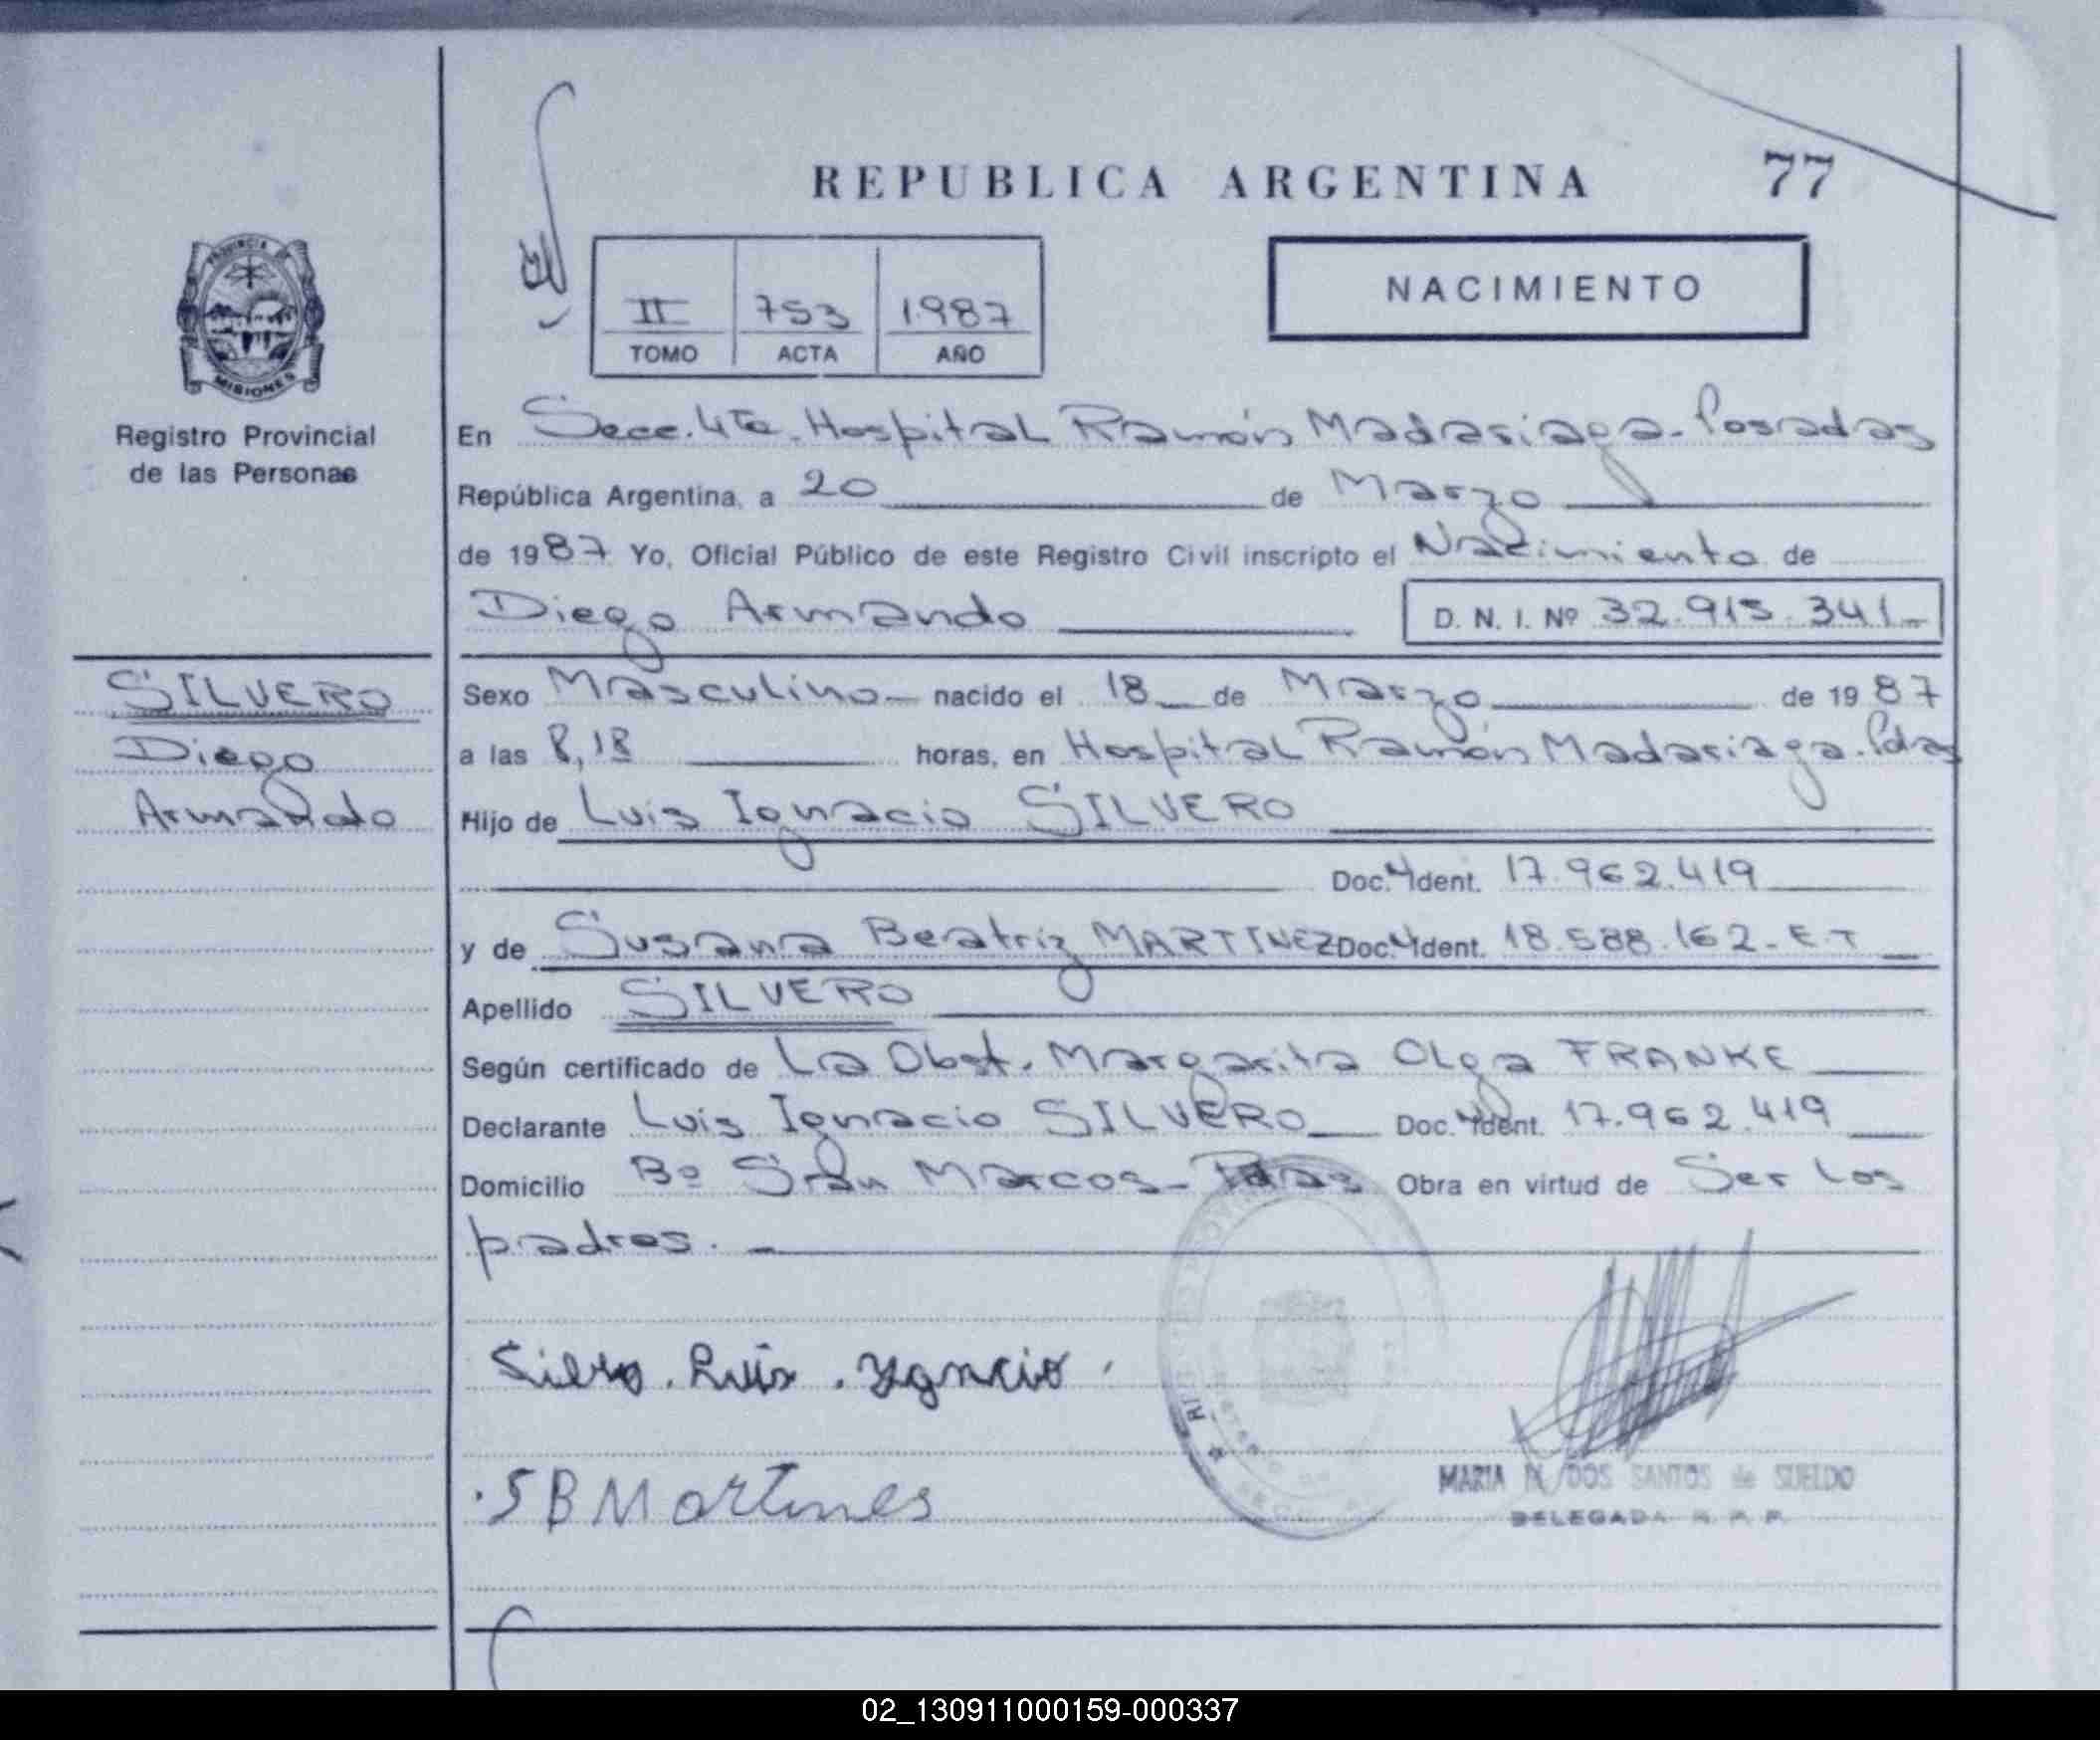 REPUBLICA ARGENTINA
77
PROVINCIA DE
MISIONES
Registro Provincial
de las Personas
II
TOMO
753
ACTA
1987
AÑO
NACIMIENTO
En Secc. 4ta. Hospital Ramón Madariaga - Posadas
República Argentina, a 20 de Marzo
de 1987 Yo, Oficial Público de este Registro Civil inscripto el Nacimiento de
Diego Armando
D. N. I. Nº 32.915.341-
SILVERO
Diego
Armando
Sexo Masculino - nacido el 18 de Marzo de 1987
a las 8,18 horas, en Hospital Ramón Madariaga. Pdas
Hijo de Luis Ignacio SILVERO
Doc. Ident. 17.962.419
y de Susana Beatriz MARTINEZ Doc. Ident. 18.588.162 - E.T
Apellido SILVERO
Según certificado de La Obst. Margarita Olga FRANKE
Declarante Luis Ignacio SILVERO Doc. Ident. 17.962.419
Domicilio Bº San Marcos - Pdas Obra en virtud de Ser los
padres. -
Silvero. Luis. Ygnacio.
. S B Martines
MARIA DOS SANTOS de SUELDO
DELEGADA R. P. P.
02_130911000159-000337